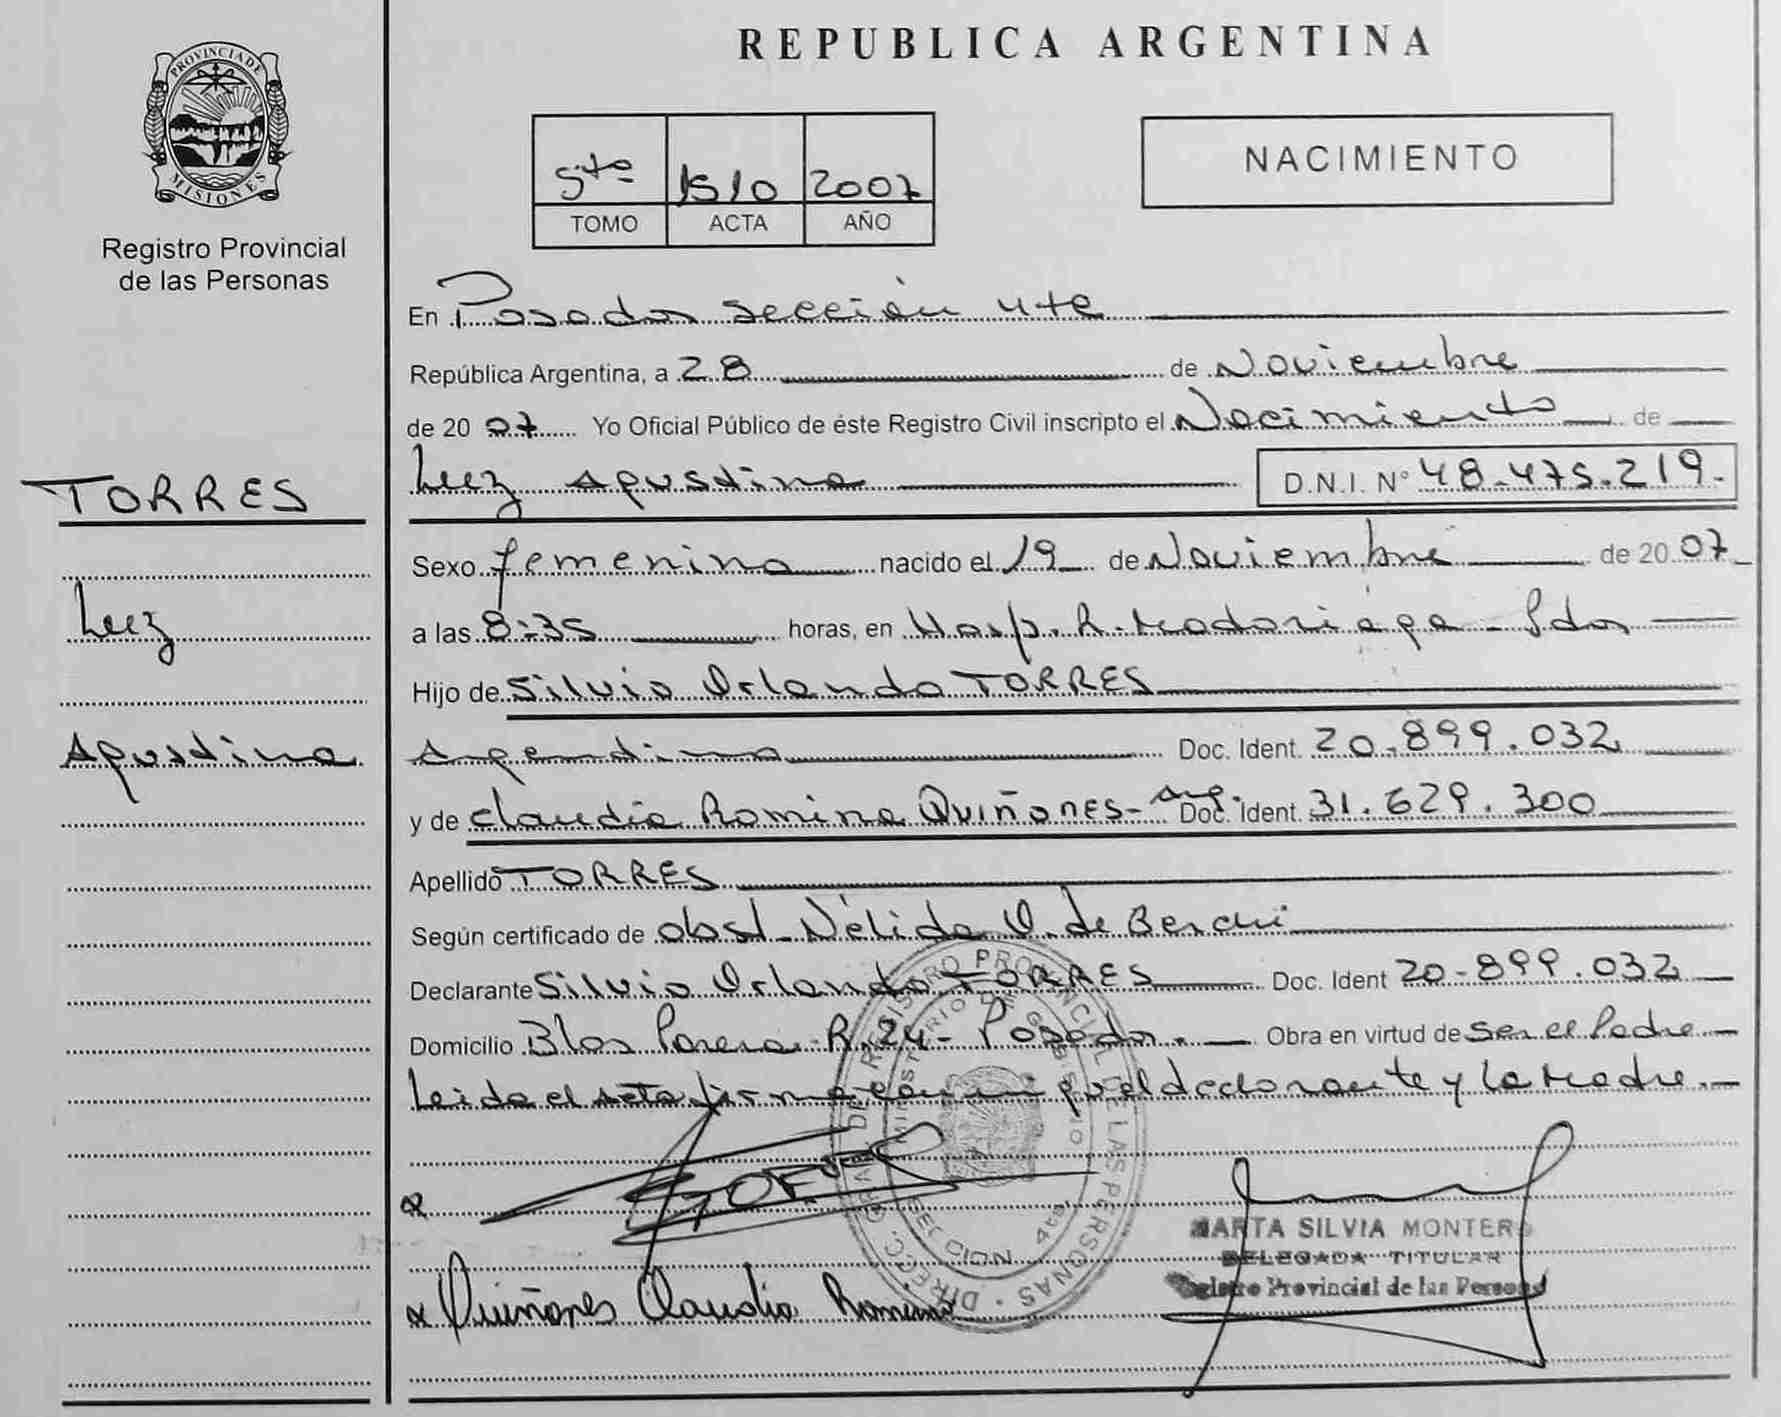 PROVINCIA DE
MISIONES
Registro Provincial
de las Personas
TORRES
Luz
Agustina
REPUBLICA ARGENTINA
5to 1510 2007
TOMO ACTA AÑO
NACIMIENTO
En Posadas sección 4te
República Argentina, a 28 de Noviembre
de 2007 Yo Oficial Público de éste Registro Civil inscripto el Nacimiento de
Luz Agustina D.N.I. Nº 48.475.219.-
Sexo femenino nacido el 19 de Noviembre de 2007
a las 8:35 horas, en Hosp. R. Madariaga - Pdas
Hijo de Silvio Orlando TORRES
Argentino Doc. Ident. 20.899.032
y de Claudia Romina QUIÑONES - Arg. Doc. Ident. 31.629.300
Apellido TORRES
Según certificado de obst. Nélida V. de
Declarante Silvio Orlando TORRES Doc. Ident 20-899.032
Domicilio Blas Parera R.24 - Posadas. Obra en virtud de ser el Padre
Leida el acta firma conmigo el declarante y la Madre.
x
x Quiñones Claudia Romina
MARTA SILVIA MONTERO
DELEGADA TITULAR
Registro Provincial de las Personas
DIRECC. GRAL. DE REGISTRO PROVINCIAL DE LAS PERSONAS
MINISTERIO DE GOBIERNO
SECCION 4ta